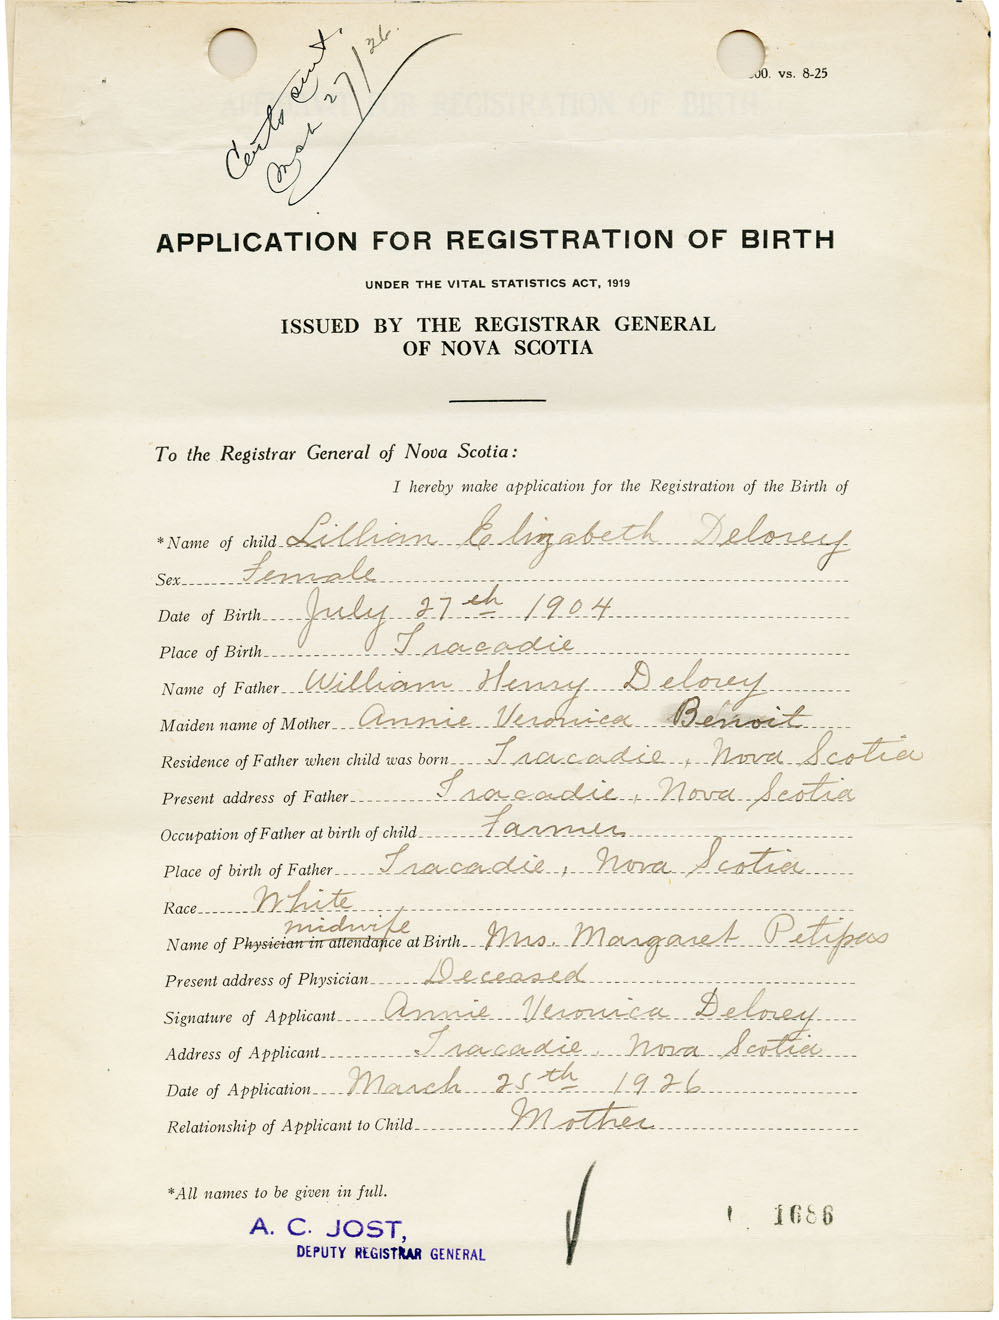 Certs sent.
Mch 27/26.
00. vs. 8-25
APPLICATION FOR REGISTRATION OF BIRTH
UNDER THE VITAL STATISTICS ACT, 1919
ISSUED BY THE REGISTRAR GENERAL
OF NOVA SCOTIA
To the Registrar General of Nova Scotia:
I hereby make application for the Registration of the Birth of
*Name of child Lillian Elizabeth Delorey
Sex Female
Date of Birth July 27th 1904
Place of Birth Tracadie
Name of Father William Henry Delorey
Maiden name of Mother Annie Veronica Benoit
Residence of Father when child was born Tracadie, Nova Scotia
Present address of Father Tracadie, Nova Scotia
Occupation of Father at birth of child Farmer
Place of birth of Father Tracadie, Nova Scotia
Race White
midwife
Name of Physician in attendance at Birth Mrs. Margaret Petipas
Present address of Physician Deceased
Signature of Applicant Annie Veronica Delorey
Address of Applicant Tracadie, Nova Scotia
Date of Application March 25th 1926
Relationship of Applicant to Child Mother
*All names to be given in full.
A. C. JOST,
DEPUTY REGISTRAR GENERAL
1686